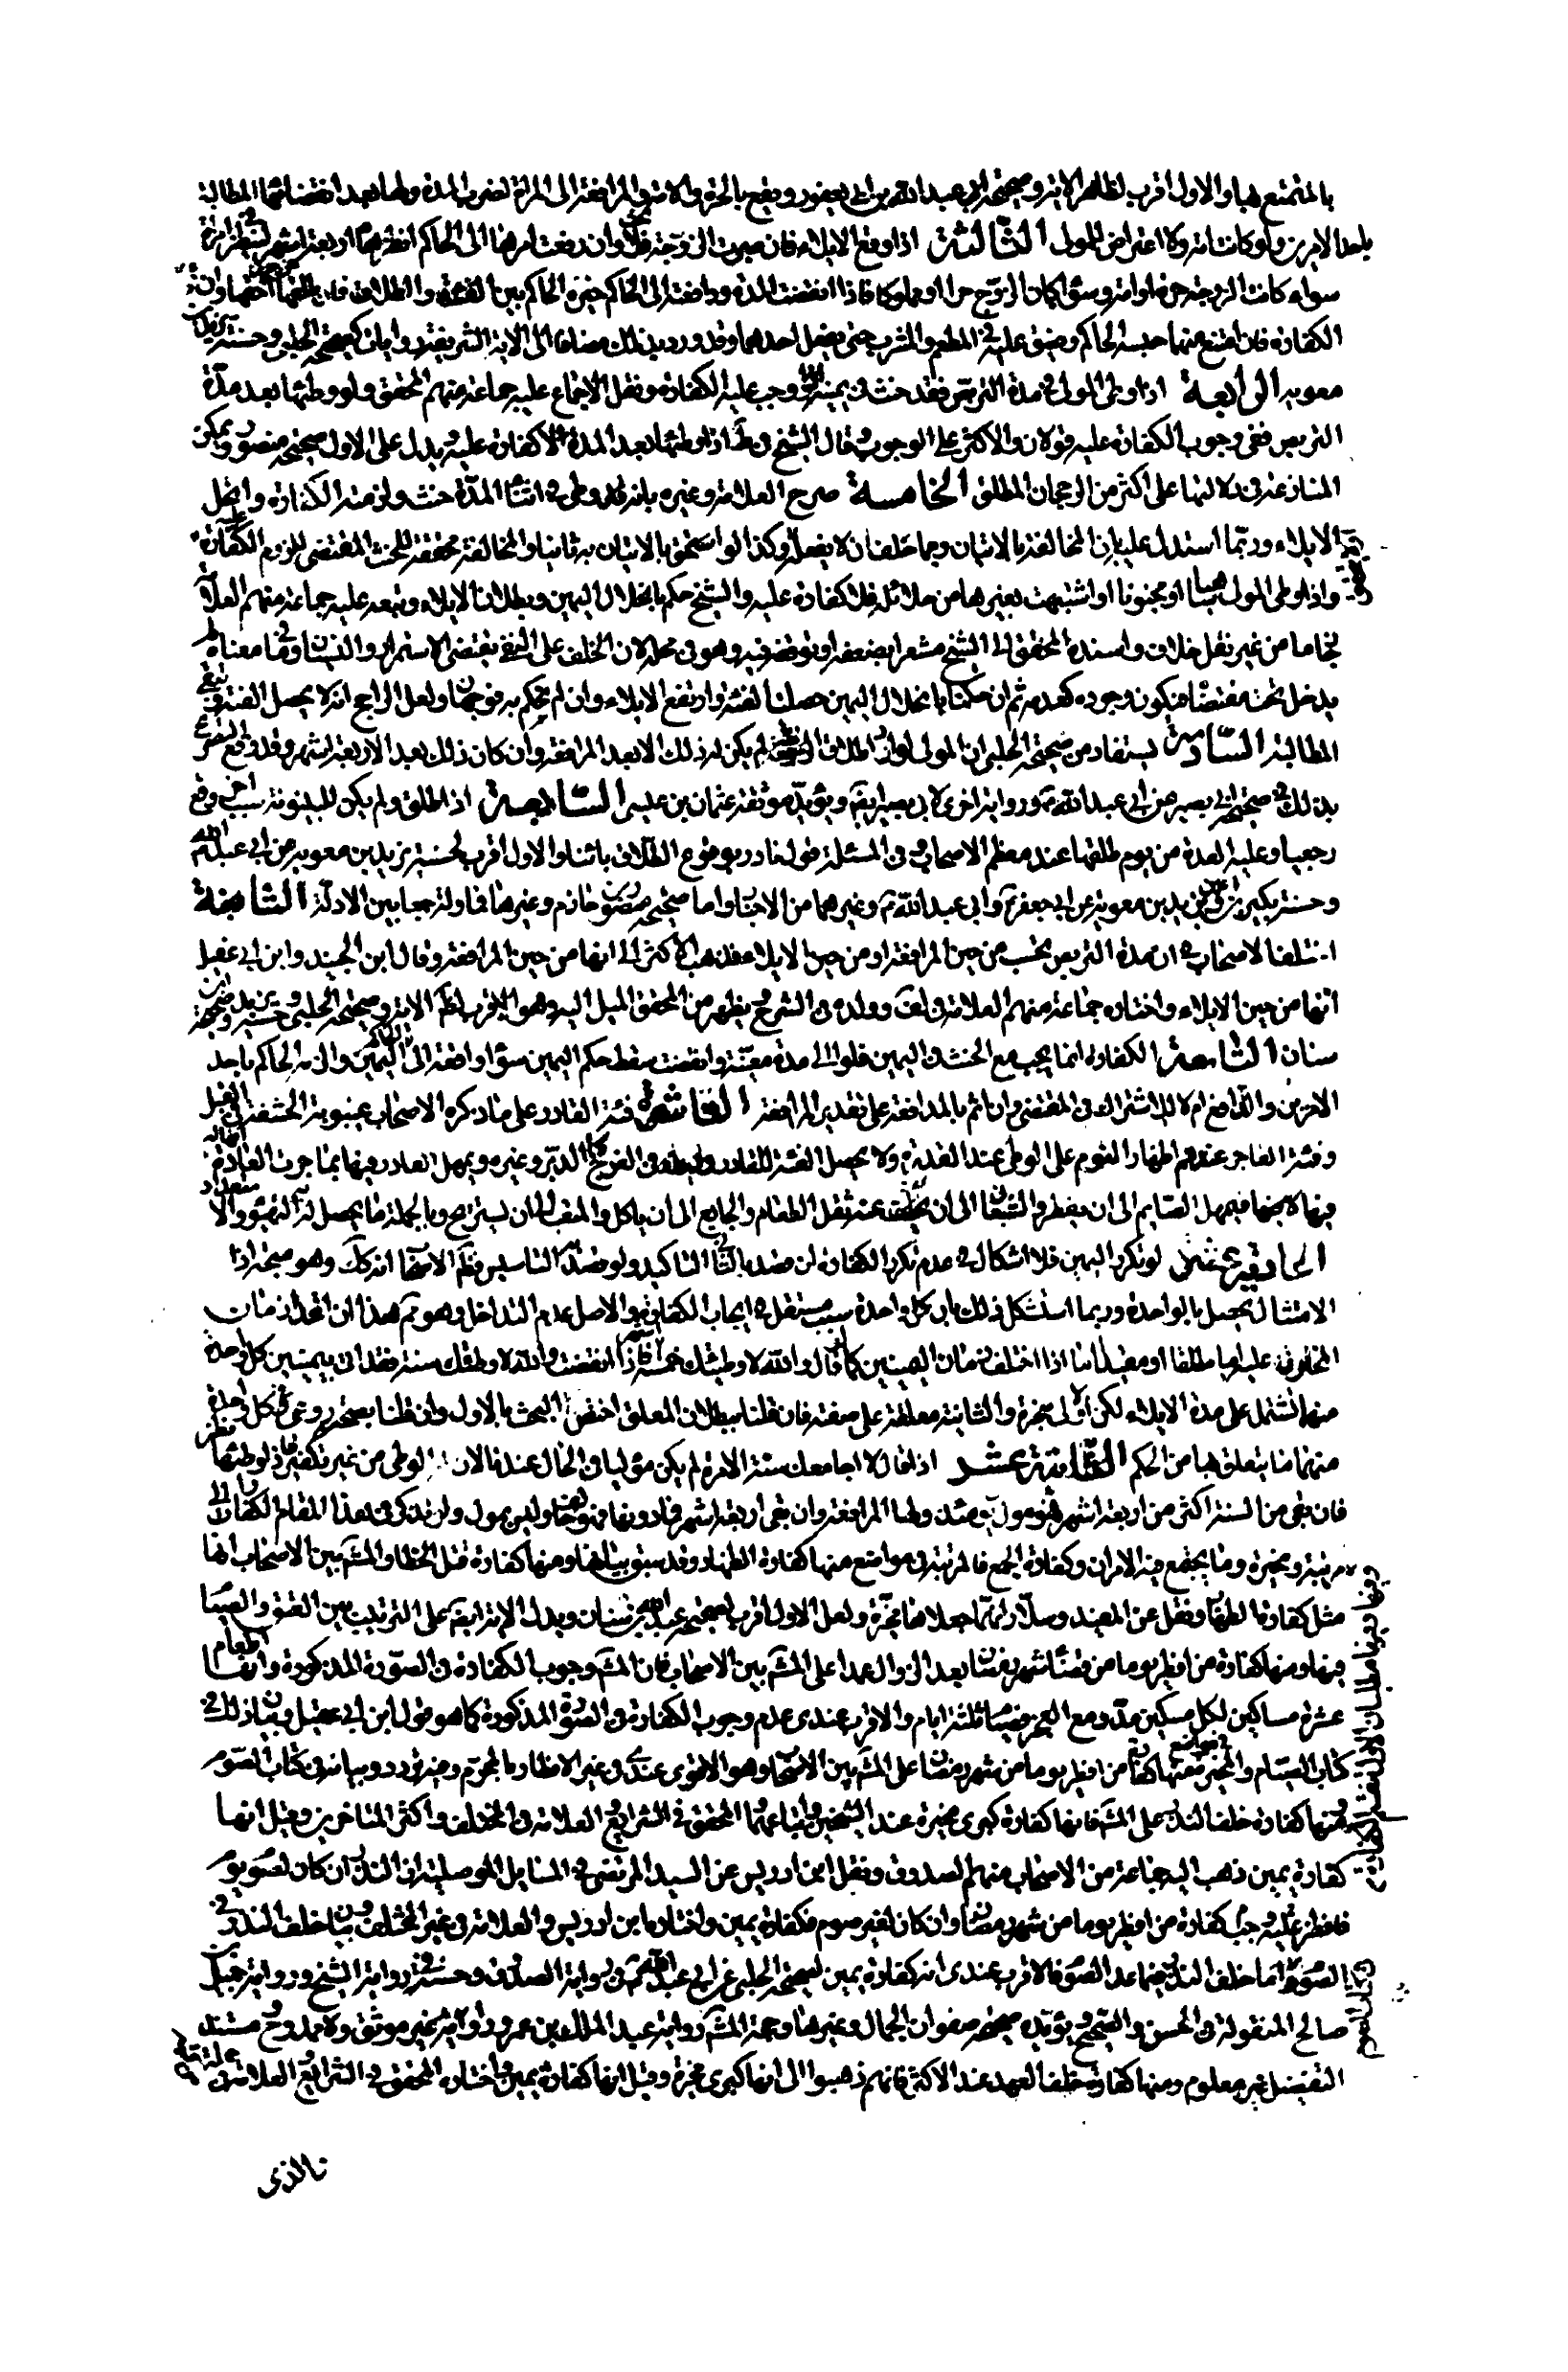 بالمتمتع بها والاول اقرب لظاهر الاية وصحيحة ابن عبد الله بن ابى يعفور ويقع بالحرة والامة والمرافعة الى المراة لضرب المدة ولها بعد انقضائها المطالبة
باحد الامرين ولو كانت امة ولا اعتراض للمولى الثالثة اذا وقع الايلاء فان صبرت الزوجة فلا وان رفعت امرها الى الحاكم انظره اربعة اشهر لينظر فى امره
سواء كانت الزوجة حرة او امة وسواء كان الزوج حرا او مملوكا فاذا انقضت المدة ورافعته الى الحاكم خيره الحاكم بين الفئة والطلاق فان طلقها
الكفارة فان امتنع منهما حبسه الحاكم وضيق عليه فى المطعم والمشرب حتى يفعل احدهما وقد ورد بذلك مضافا الى الاية الشريفة روايات كصحيحة الحلبى وحسنة بريد بن
معوية الرابعة اذا وطى المولى فى مدة التربص فقد حنث فى يمينه ووجب عليه الكفارة ونقل الاجماع عليه جماعة منهم المحقق ولو وطئها بعد مدة
التربص ففى وجوب الكفارة عليه قولان والاكثر على الوجوب وقال الشيخ فى ط اذا وطئها بعد المدة فلا كفارة عليه ويدل على الاول صحيحة منصور ويمكن
المنازعة فى دلالتها على اكثر من الرجحان المطلق الخامسة صرح العلامة وغيره بانه لو وطى فى اثناء المدة حنث ولزمته الكفارة وانحل
الايلاء وربما استدل عليه بان المخالفة بالاتيان وبما حلف ان لا يفعله وكذا لو استحق بالاتيان به ثانيا والمخالفة محققة للحنث المقتضى للزوم الكفارة
واذا وطى المولى ساهيا او مجنونا او اشتبهت بغيرها من حلائله فلا كفارة عليه والشيخ حكم بانحلال اليمين وبطلان الايلاء وتبعه عليه جماعة منهم العلامة
جازما من غير نقل خلاف واسنده المحقق الى الشيخ مشعرا بضعفه او توقفه فيه وهو فى محله لان الحلف على النفى يقتضى الاستمرار والنسيان وما فى معناه لم
يدخل تحت مقتضاه فيكون وجوده كعدمه ثم ان حكمنا بانحلال اليمين حصلت الفئة وارتفع الايلاء وان لم نحكم به فوجهان ولعل الراجح انه لا يحصل الفئة فتبقى
المطالبة السادسة يستفاد من صحيحة الحلبى ان المولى لو اراد طلاق الزوجة لم يكن له ذلك الا بعد المرافعة وان كان ذلك بعد الاربعة اشهر وقد وقع التصريح
بذلك فى صحيحة ابى بصير عن ابى عبد الله ع ورواية اخرى لابى بصير ايضا ويؤيده موثقة عثمان بن عيسى السابعة اذا طلق ولم يكن للبينونة سبب اخر وقع
رجعيا وعليها العدة من يوم طلقها عند معظم الاصحاب وفى المسئلة قول نادر بوقوع الطلاق بائنا والاول اقرب لحسنة بريد بن معوية عن ابى عبد الله ع
وحسنة بكير بن اعين وبريد بن معوية عن ابى جعفر ع وابى عبد الله ع وغيرهما من الاخبار واما صحيحة منصور بن حازم وغيرها فماولة جمعا بين الادلة الثامنة
اختلف الاصحاب فى ان مدة التربص تحتسب من حين المرافعة او من حين الايلاء فذهب الاكثر الى انها من حين المرافعة وقال ابن الجنيد وابن ابى عقيل
انها من حين الايلاء واختاره جماعة منهم العلامة فى لف وولده فى الشرح ويظهر من المحقق الميل اليه وهو الاقرب لظاهر الاية وصحيحة الحلبى وحسنة بريد وصحيحة ابن
سنان التاسعة الكفارة انما يجب مع الحنث فى اليمين فلو الى مدة معينة وانقضت سقط حكم اليمين سواء رافعته الى الحاكم والزمه الحاكم باحد
الامرين والتراضى ام لا لاشتراك فى المقتضى وان اثم بالمدافعة على تقدير المرافعة العاشرة فئة القادر على ما ذكره الاصحاب غيبوبة الحشفة فى القبل
وفئة العاجز عندهم اظهار العزم على الوطى عند القدرة ولا يحصل الفئة للقادر بالوطى فى غير الفرج كالدبر وغيره ويمهل القادر فيها بما جرت العادة
فيها لا بحبها فيمهل الصايم الى ان يفطر والشبعان الى ان يخف عنه ثقل الطعام والجايع الى ان ياكل والمتعب الى ان يستريح وبالجملة ما يحصل له التهيؤ والا
الحادية عشر لو تكرر اليمين فلا اشكال فى عدم تكرر الكفارة لو قصد بالثانى التاكيد ولو قصد التاسيس فظاهر الاصحاب انه كك وهو صحيح اذا
الامتثال يحصل بالواحدة وربما استشكل ذلك بان كل واحدة سبب مستقل فى ايجاب الكفارة والاصل عدم التداخل وهو تم هذا ان اتحد زمان
المحلوف عليه اما مطلقا او مقيدا اما اذا اختلف زمان اليمينين كما لو قال والله لا وطيتك خمسة اشهر فاذا انقضت والله لا وطئتك سنة فقد اتى بيمينين كل واحدة
منهما تشتمل على مدة الايلاء لكن الاولى منجزة والثانية معلقة على صفة فان قلنا ببطلان المعلق اختص البحث بالاول وان قلنا بصحته روعى فى كل واحدة
منهما ما يتعلق بها من الحكم الثانية عشر اذا قال لا اجامعك سنة الا مرة لم يكن موليا فى الحال عندنا لان الوطى من غير تكفير فاذا وطئها
فان بقى من السنة اكثر من اربعة اشهر فهو مول يومئذ ولها المرافعة وان بقى اربعة اشهر فما دونها فهو حالف وليس بمول ولنذكر فى هذا المقام الكفارات
مرتبة ومخيرة وما يجتمع فيه الامران وكفارة الجمع فالمرتبة فى مواضع منها كفارة الظهار وقد سبق بيانها ومنها كفارة قتل الخطا والمشهور بين الاصحاب انها
مثل كفارة الظهار ونقل عن المفيد وسلار انهما جعلاها مخيرة ولعل الاول اقرب لصحيحة عبد الله بن سنان ويدل الاية ايضا على الترتيب بين العتق والصيام
فيها ومنها كفارة من افطر يوما من قضاء شهر رمضان بعد الزوال عمدا على المشهور بين الاصحاب فان المشهور وجوب الكفارة فى الصورة المذكورة وانها اطعام
عشرة مساكين لكل مسكين مد ومع العجز صيام ثلثة ايام والاقرب عندى عدم وجوب الكفارة فى الصورة المذكورة كما هو قول ابن ابى عقيل وبيان ذلك فى
كتاب الصيام والمخيرة فى مواضع منها كفارة من افطر يوما من شهر رمضان على المشهور بين الاصحاب وهو الاقوى عندى فى غير الافطار بالمحرم وفيه تردد وبيانه فى كتاب الصوم
ومنها كفارة خلف النذر على المشهور فانها كفارة كبرى مخيرة عند الشيخين واتباعهما والمحقق فى الشرايع والعلامة فى المختلف واكثر المتاخرين وقيل انها
كفارة يمين ذهب اليه جماعة من الاصحاب منهم الصدوق ونقل ابن ادريس عن السيد المرتضى فى المسايل الموصلية ان النذر ان كان لصوم يوم
فافطر عليه وجب كفارة من افطر يوما من شهر رمضان وان كان لغير صوم فكفارة يمين واختاره ابن ادريس والعلامة فى غير المختلف وبيان خلف النذر فى
الصوم اما خلف النذر فيما عدا الصوم فالاقرب عندى انه كفارة يمين لصحيحة الحلبى عن ابى عبد الله ع فى رواية الصدوق وحسنته فى رواية الشيخ ورواية جميل بن
صالح المنقولة فى الحسن والصحيح ويؤيده صحيحة صفوان الجمال وغيرها وحجة المشهور رواية عبد الملك بن عمرو وراويها غير موثق ولا ممدوح مستند
التفصيل غير معلوم ومنها كفارة خلف العهد عند الاكثر فانهم ذهبوا الى انها كبرى مخيرة وقيل انها كفارة يمين واختاره المحقق فى الشرايع والعلامة فى
نا الذى